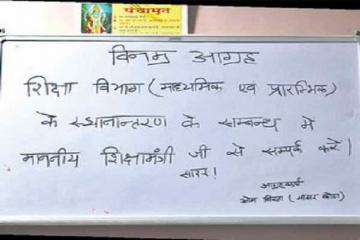 पंचामृत
विनम्र आग्रह
शिक्षा विभाग (माध्यमिक एवं प्रारम्भिक)
के स्थानान्तरण के सम्बन्ध में
माननीय शिक्षामंत्री जी से सम्पर्क करें।
सादर!
ओम बिरला